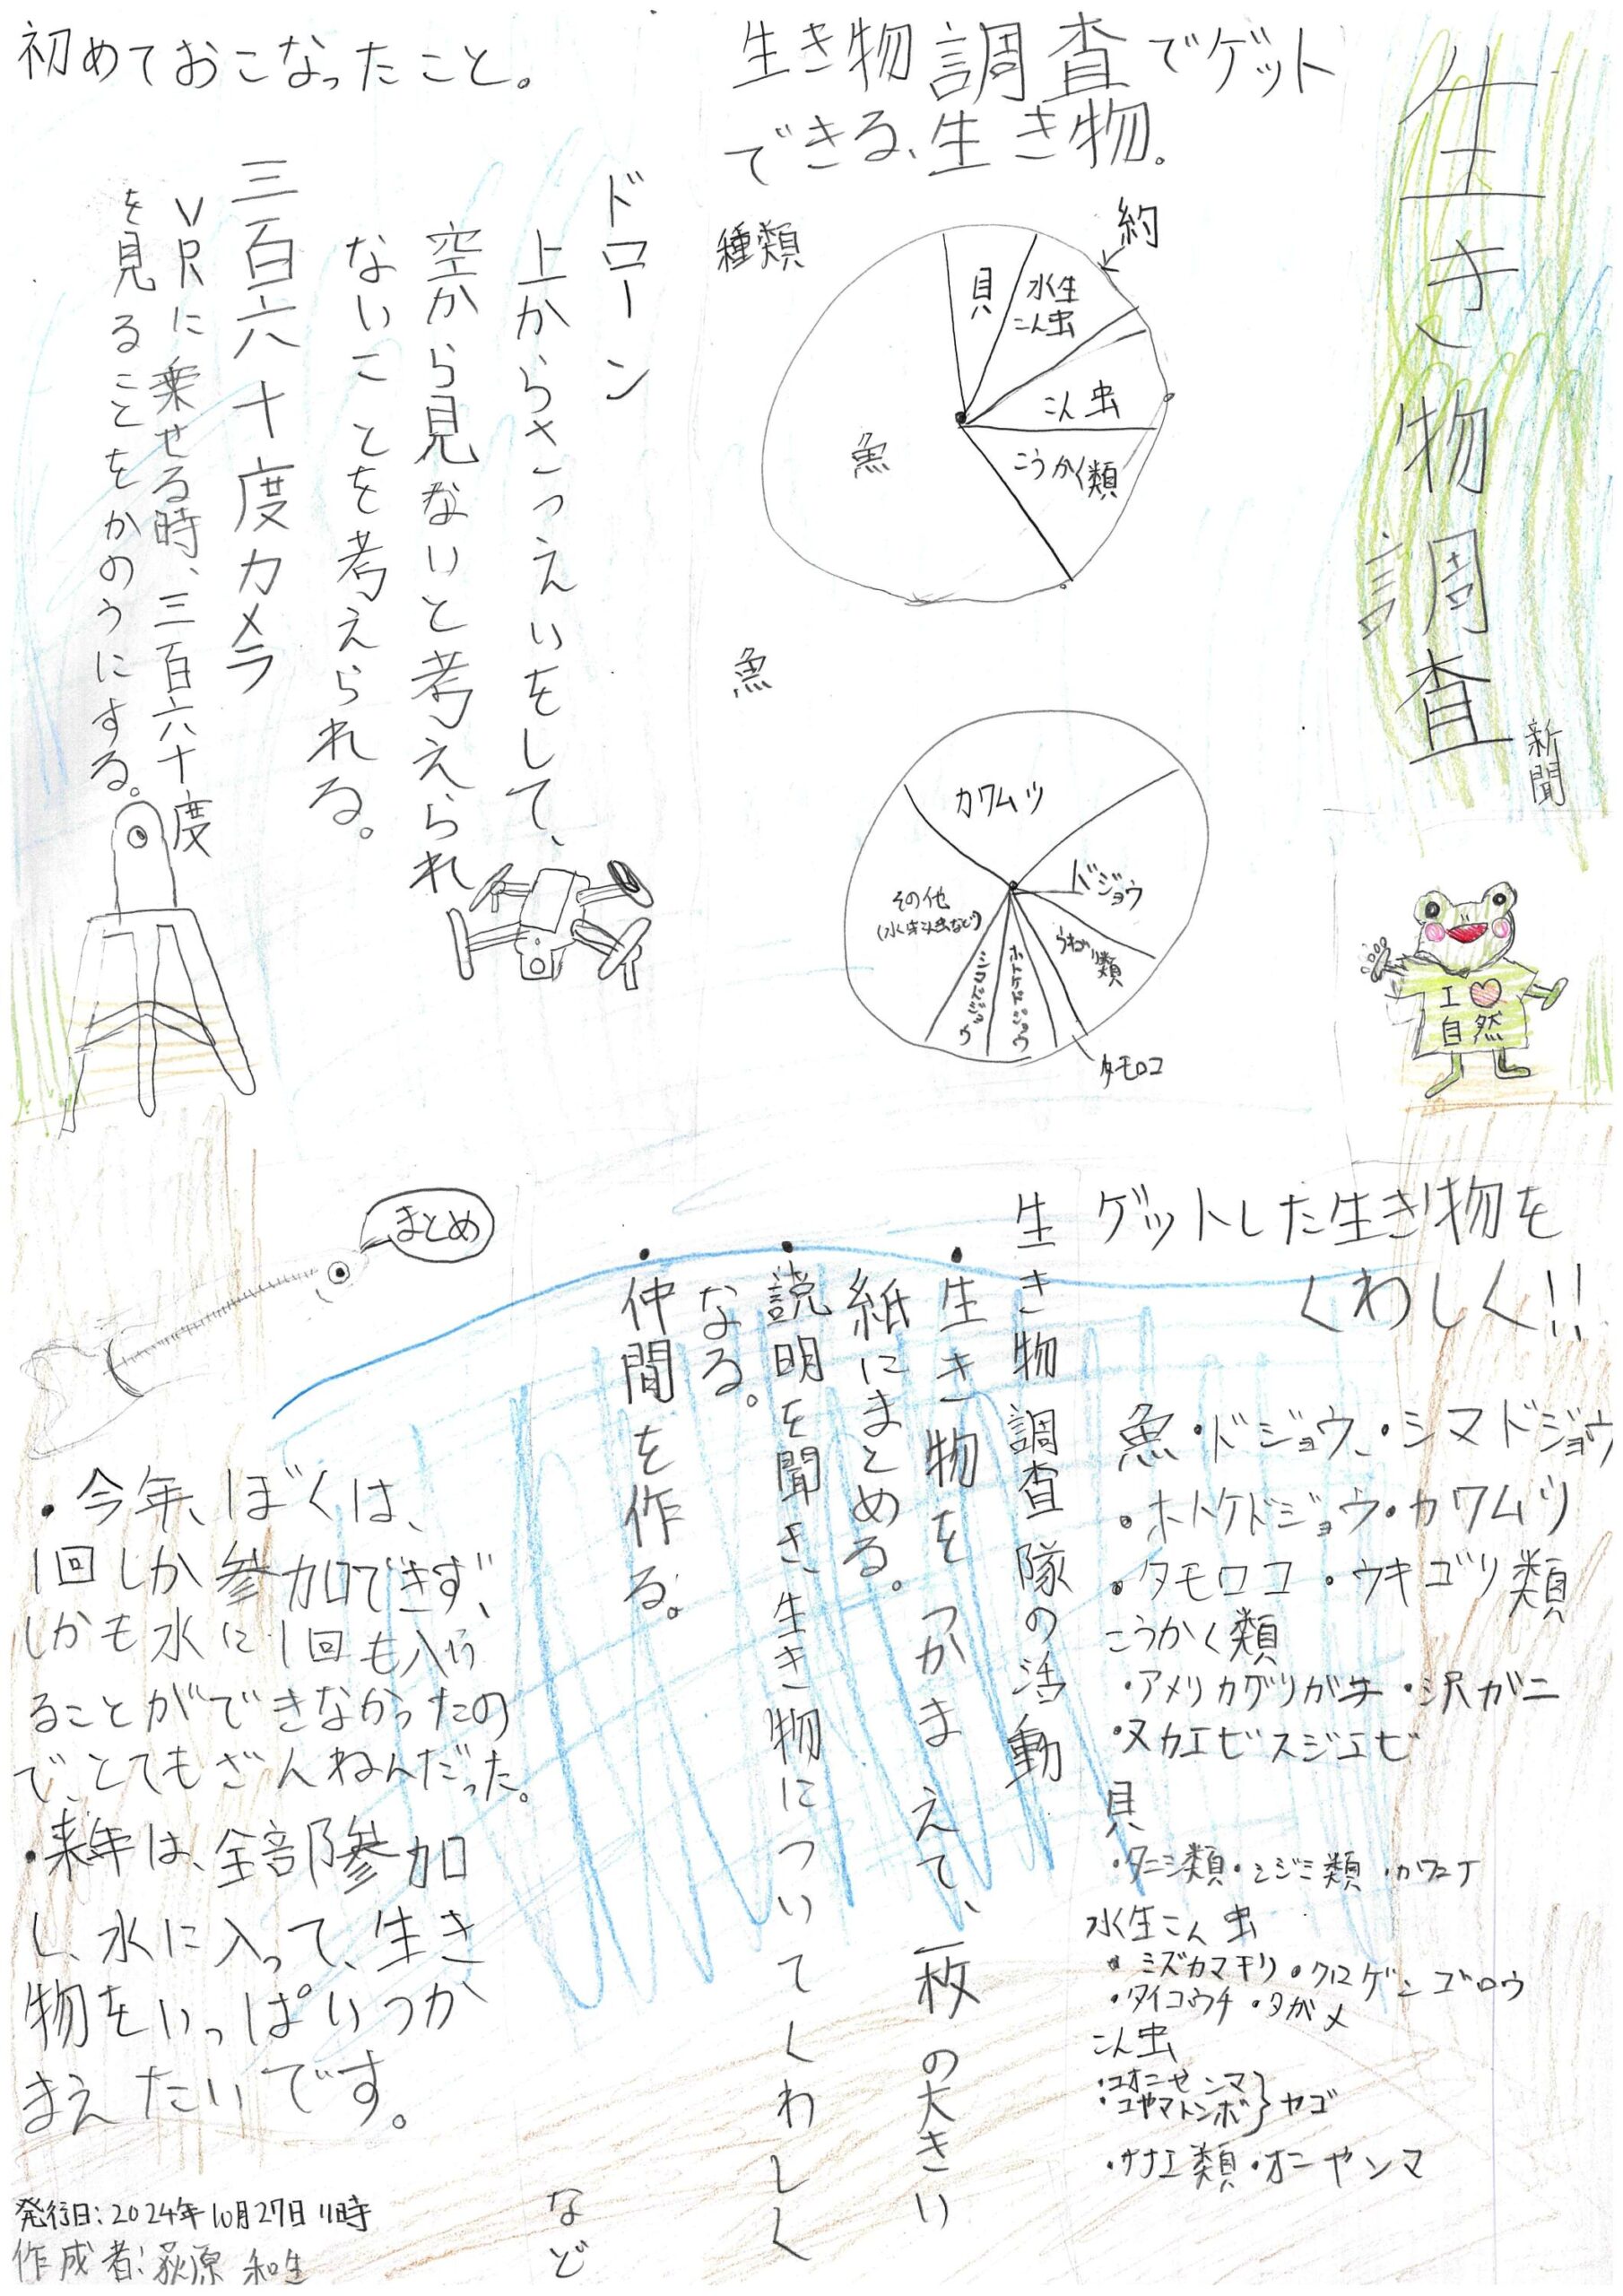 生き物調査
新聞
I ♡
自然
生き物調査でゲット
できる、生き物。
種類
約
貝
水生
こん虫
こん虫
こうかく類
魚
魚
カワムツ
ドジョウ
類
タモロコ
ホトケドジョウ
シマドジョウ
その他
初めておこなったこと。
ドローン
上からさつえいをして、
空から見ないと考えられ
ないことを考えられる。
三百六十度カメラ
VRに乗せる時、三百六十度
を見ることをかのうにする。
ゲットした生き物を
くわしく!!
魚・ドジョウ、・シマドジョウ
・ホトケドジョウ・カワムツ
・タモロコ・ウキゴリ類
こうかく類
・アメリカザリガニ・沢ガニ
・ヌカエビスジエビ
貝
・タニシ類・シジミ類・カワニナ
水生こん虫
・ミズカマキリ・クロゲンゴロウ
・タイコウチ・タガメ
こん虫
・コオニヤンマ
・コヤマトンボ
ヤゴ
・サナエ類・オニヤンマ
生き物調査隊の活動
・生き物をつかまえて、一枚の大きい
紙にまとめる。
・説明を聞き生き物についてくわしく
なる。
・仲間を作る。
など
まとめ
・今年、ぼくは、
1回しか参加できず、
しかも水に1回も入
ることができなかったの
で、とてもざんねんだった。
・来年は、全部参加
し、水に入って、生き
物をいっぱいつか
まえたいです。
発行日:2024年10月27日11時
作成者:荻原 和生